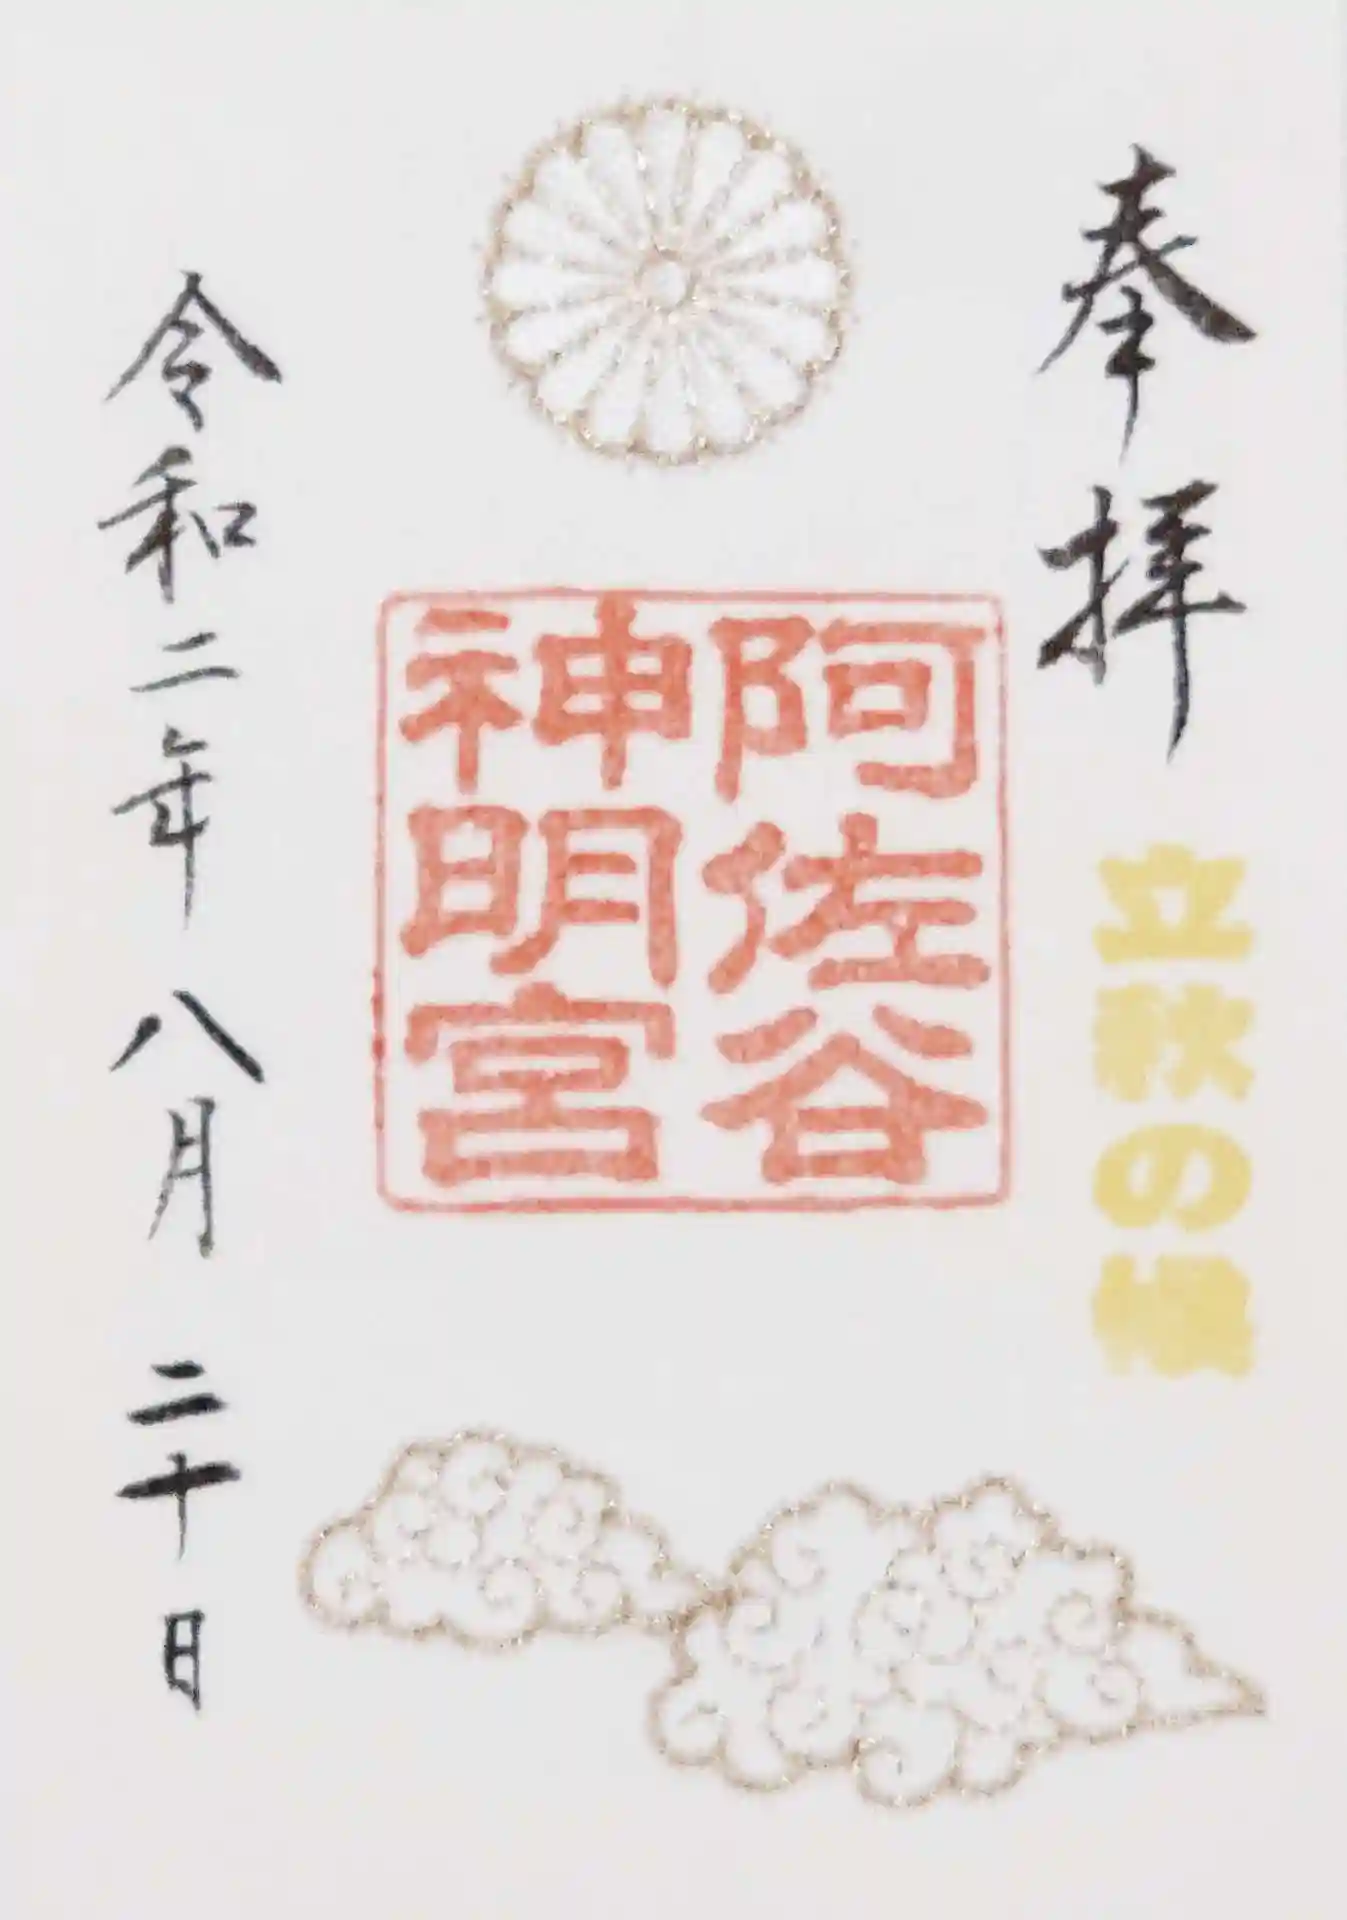 奉拝
立秋の
阿佐谷
神明宮
令和二年八月二十日